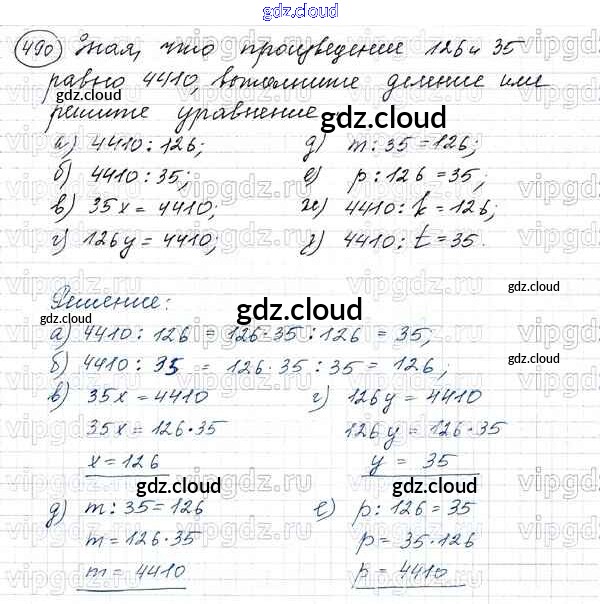 gdz.cloud
490 Зная, что произведение 126 и 35
равно 4410, выполните деление или
решите уравнение
gdz.cloud
а) 4410 : 126; д) m : 35 = 126;
б) 4410 : 35; е) p : 126 = 35;
в) 35x = 4410; ж) 4410 : k = 126;
г) 126y = 4410; з) 4410 : t = 35.
Решение:
gdz.cloud gdz.cloud
а) 4410 : 126 = 126·35 : 126 = 35;
gdz.cloud
б) 4410 : 35 = 126·35 : 35 = 126;
в) 35x = 4410 г) 126y = 4410
35x = 126·35 126y = 126·35
x = 126 y = 35
gdz.cloud gdz.cloud
д) m : 35 = 126 е) p : 126 = 35
m = 126·35 p = 35·126
m = 4410 p = 4410